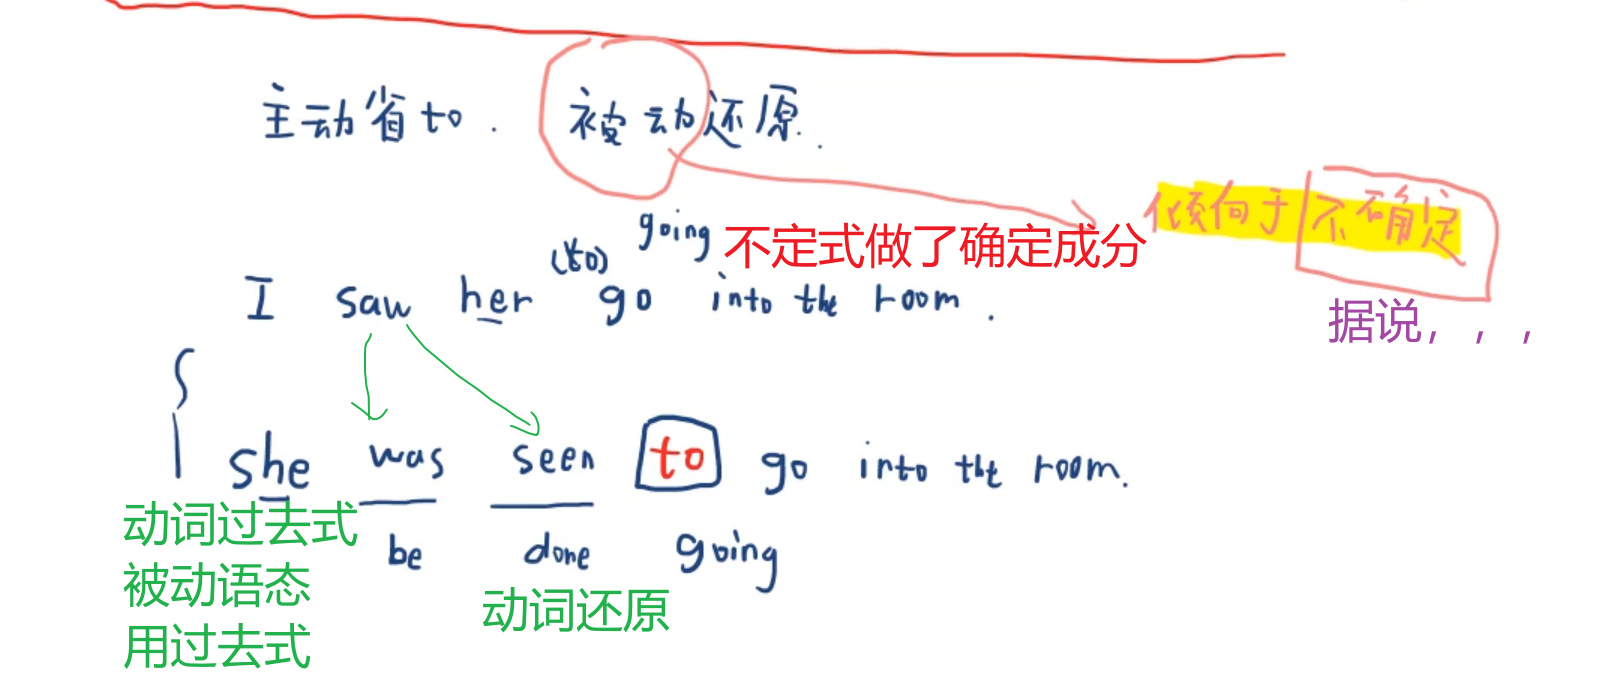 主动省to. 被动还原.
倾向于不确定
going 不定式做了确定成分
(to)
I saw her go into the room.
据说，，，
she was seen to go into the room.
be done going
动词过去式
被动语态
用过去式
动词还原